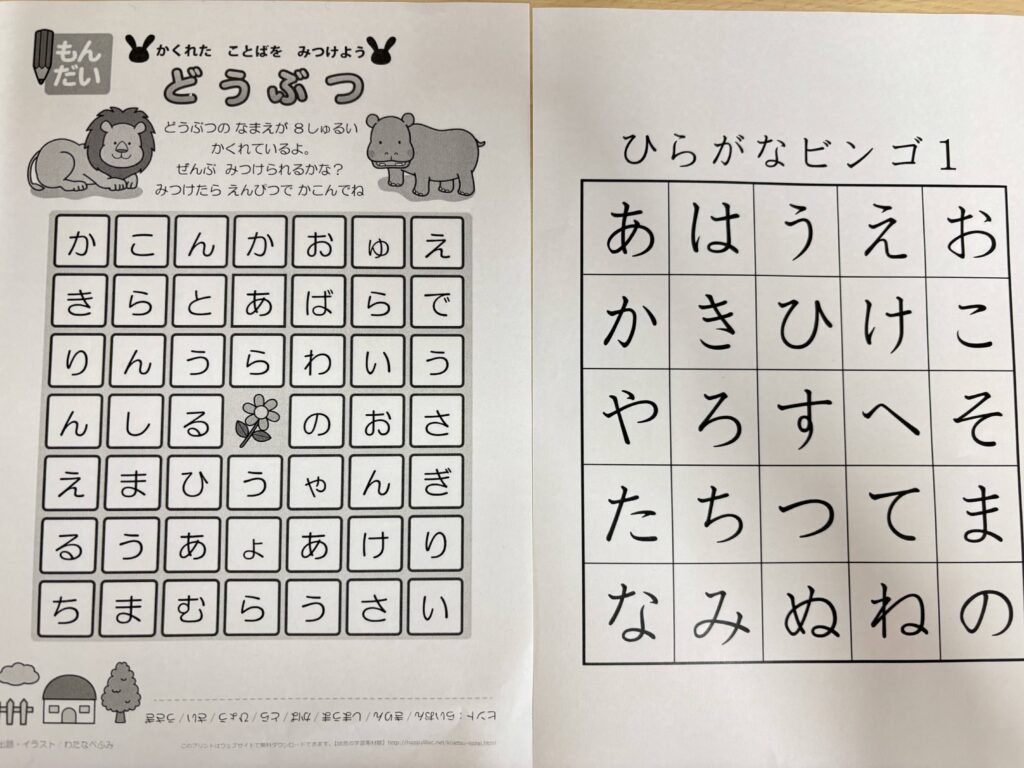 もん
だい
かくれた ことばを みつけよう
どうぶつ
どうぶつの なまえが 8しゅるい
かくれているよ。
ぜんぶ みつけられるかな？
みつけたら えんぴつで かこんでね
か こ ん か お ゅ え
き ら と あ ば ら で
り ん う ら わ い う
ん し る の お さ
え ま ひ う ゃ ん ぎ
る う あ ょ あ け り
ち ま む ら う さ い
ヒント：らいおん／きりん／しまうま／かば／とら／ひょう／さい／うさぎ
出題・イラスト／わたなべふみ
ひらがなビンゴ1
あ は う え お
か き ひ け こ
や ろ す へ そ
た ち つ て ま
な み ぬ ね の